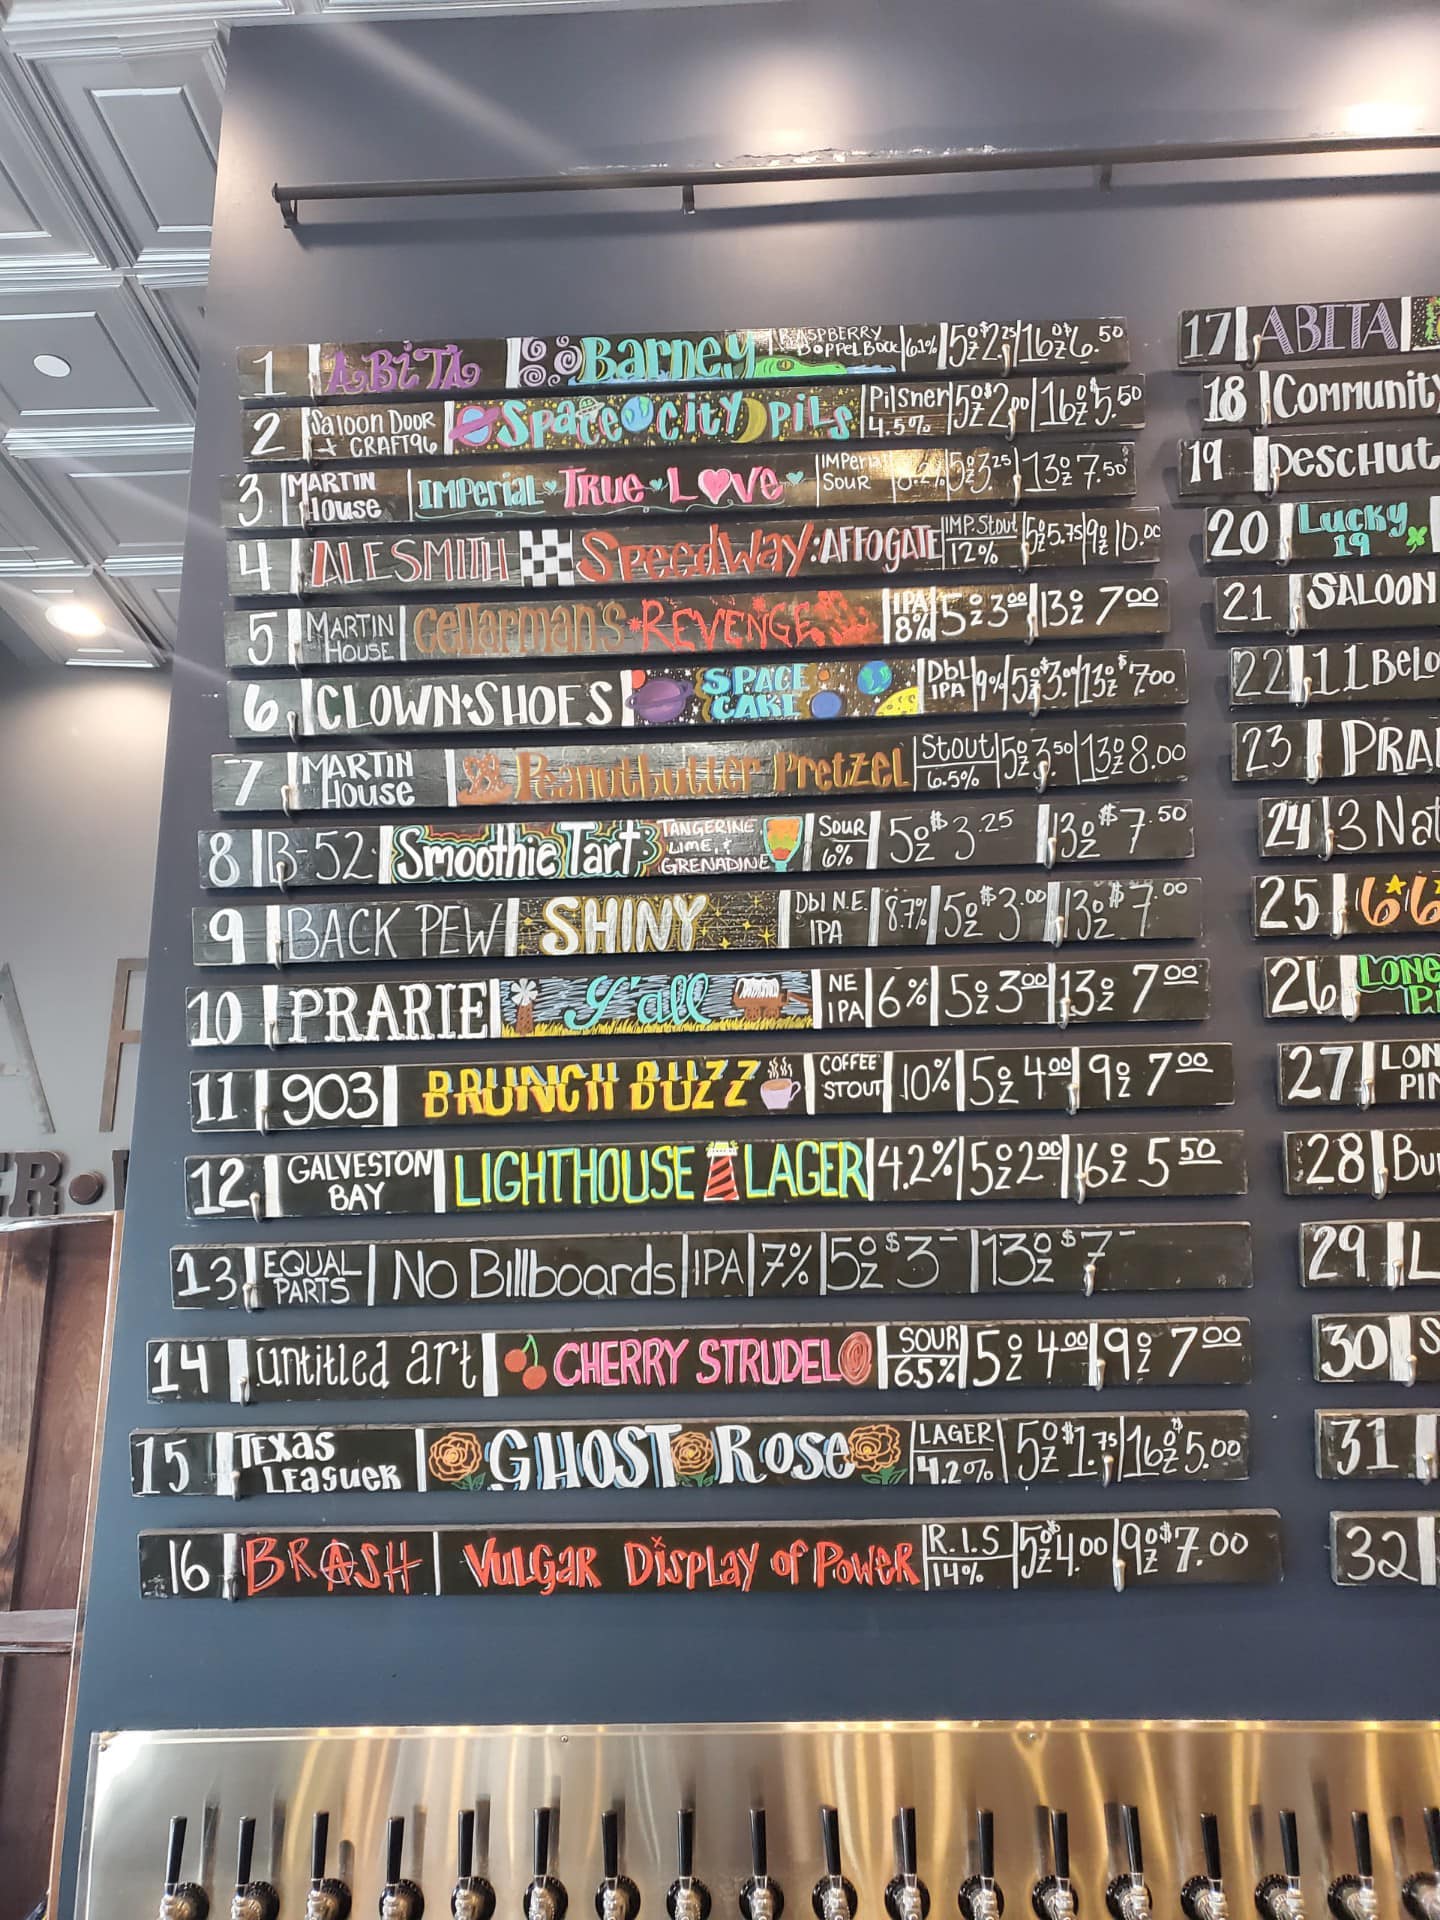 1 ABiTA Barney RASPBERRY DOPPELBOCK 6.1% 5oz $2.25 16oz $6.50
2 Saloon DOOR + CRAFT96 Space City Pils Pilsner 4.5% 5oz $2.00 16oz $5.50
3 MARTIN House IMPerial True LOVe IMPerial SOUR 5oz 3.25 13oz 7.50
4 ALESMITH SpeedWay AFFOGATE IMP. Stout 12% 5oz 5.75 9oz 10.00
5 MARTIN HOUSE Cellarman's REVENGE IPA 8% 5oz 3.00 13oz 7.00
6 CLOWN SHOES SPACE CAKE Dbl IPA 9% 5oz $3.00 13oz $7.00
7 MARTIN House Peanutbutter Pretzel Stout 6.5% 5oz 3.50 13oz 8.00
8 B-52 Smoothie Tart TANGERINE, LIME, & GRENADINE SOUR 6% 5oz $3.25 13oz $7.50
9 BACK PEW SHINY Dbl N.E. IPA 8.7% 5oz $3.00 13oz $7.00
10 PRARIE Y'all NE IPA 6% 5oz 3.00 13oz 7.00
11 903 BRUNCH BUZZ COFFEE STOUT 10% 5oz 4.00 9oz 7.00
12 GALVESTON BAY LIGHTHOUSE LAGER 4.2% 5oz 2.00 16oz 5.50
13 EQUAL PARTS No Billboards IPA 7% 5oz $3- 13oz $7-
14 untitled art CHERRY STRUDEL SOUR 6.5% 5oz 4.00 9oz 7.00
15 TEXas LEaguer GHOST Rose LAGER 4.2% 5oz $1.75 16oz $5.00
16 BRASH VULGAR DisplAy of PoweR R.I.S 14% 5oz $4.00 9oz $7.00
17 ABITA
18 Community
19 DESCHUT
20 Lucky 19
21 SALOON
22 11 Belo
23 PRA
24 3 Nat
25 66
26 LONE PI
27 LON PIN
28 Bu
29 L
30 S
31
32